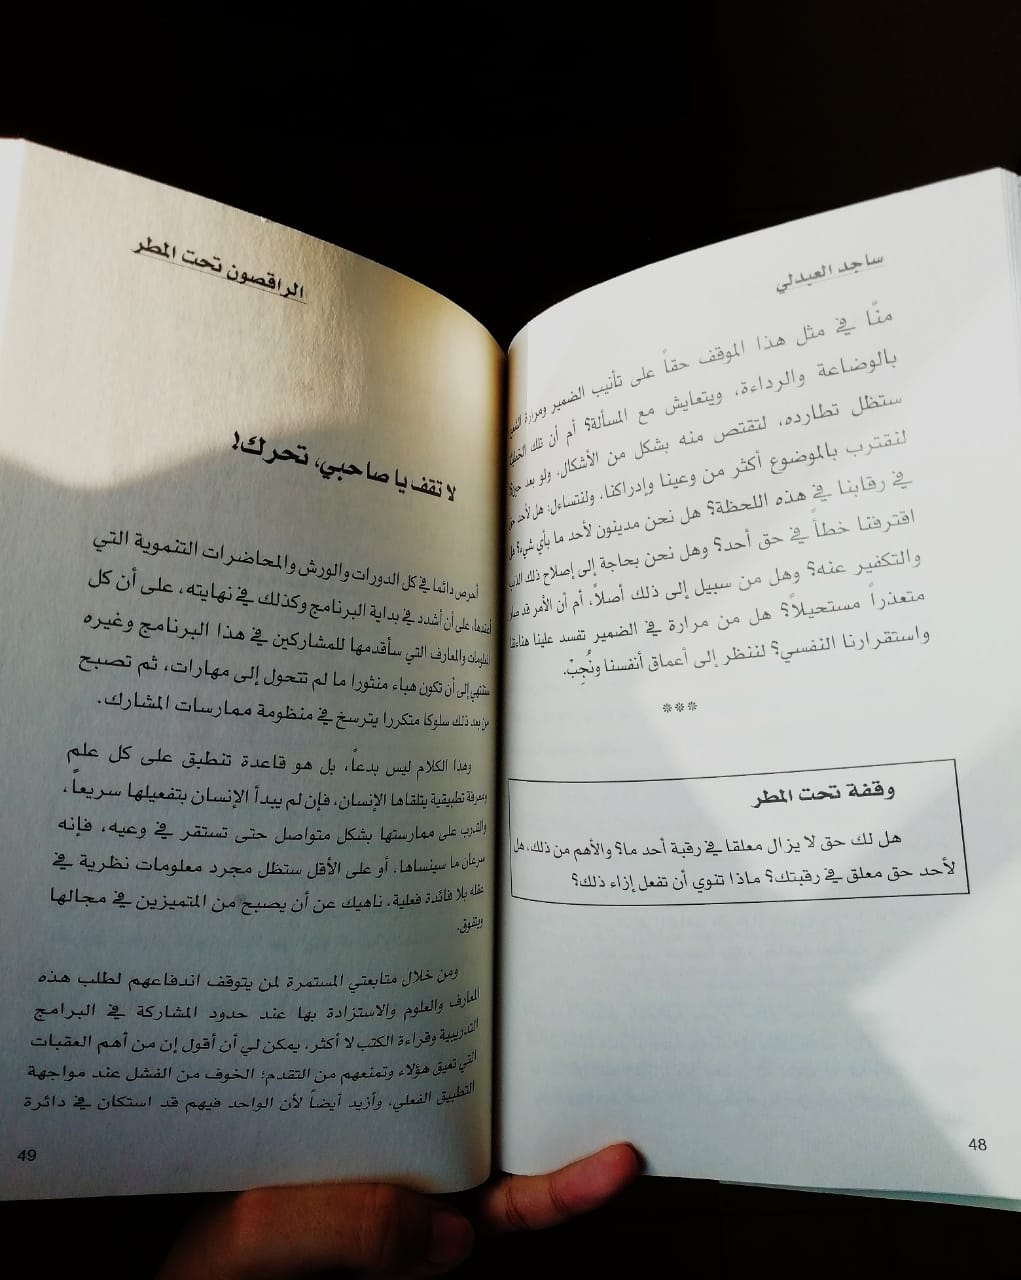 ساجد العبدلي
منّا في مثل هذا الموقف حقاً على تأنيب الضمير ومرارة
بالوضاعة والرداءة، ويتعايش مع المسألة؟ أم أن تلك
ستظل تطارده، لتقتص منه بشكل من الأشكال، ولو بعد
لنقترب بالموضوع أكثر من وعينا وإدراكنا، ولنتساءل: هل لأحد حق
في رقابنا في هذه اللحظة؟ هل نحن مدينون لأحد ما بأي شيء؟ هل
اقترفنا خطأً في حق أحد؟ وهل نحن بحاجة إلى إصلاح ذلك الذنب
والتكفير عنه؟ وهل من سبيل إلى ذلك أصلاً، أم أن الأمر قد صار
متعذراً مستحيلاً؟ هل من مرارة في الضمير تفسد علينا هناءتنا
واستقرارنا النفسي؟ لننظر إلى أعماق أنفسنا ونُجِبْ.
***
وقفة تحت المطر
هل لك حق لا يزال معلقا في رقبة أحد ما؟ والأهم من ذلك، هل
لأحد حق معلق في رقبتك؟ ماذا تنوي أن تفعل إزاء ذلك؟
48
الراقصون تحت المطر
لا تقف يا صاحبي، تحرك!
أحرص دائما في كل الدورات والورش والمحاضرات التنموية التي
أعقدها، على أن أشدد في بداية البرنامج وكذلك في نهايته، على أن كل
المعلومات والمعارف التي سأقدمها للمشاركين في هذا البرنامج وغيره
ستنتهي إلى أن تكون هباء منثورا ما لم تتحول إلى مهارات، ثم تصبح
من بعد ذلك سلوكا متكررا يترسخ في منظومة ممارسات المشارك.
وهذا الكلام ليس بدعاً، بل هو قاعدة تنطبق على كل علم
ومعرفة تطبيقية يتلقاها الإنسان، فإن لم يبدأ الإنسان بتفعيلها سريعاً،
والتدرب على ممارستها بشكل متواصل حتى تستقر في وعيه، فإنه
سرعان ما سينساها، أو على الأقل ستظل مجرد معلومات نظرية في
عقله بلا فائدة فعلية، ناهيك عن أن يصبح من المتميزين في مجالها
ويتفوق.
ومن خلال متابعتي المستمرة لمن يتوقف اندفاعهم لطلب هذه
المعارف والعلوم والاستزادة بها عند حدود المشاركة في البرامج
التدريبية وقراءة الكتب لا أكثر، يمكن لي أن أقول إن من أهم العقبات
التي تعيق هؤلاء وتمنعهم من التقدم؛ الخوف من الفشل عند مواجهة
التطبيق الفعلي، وأزيد أيضاً لأن الواحد فيهم قد استكان في دائرة
49